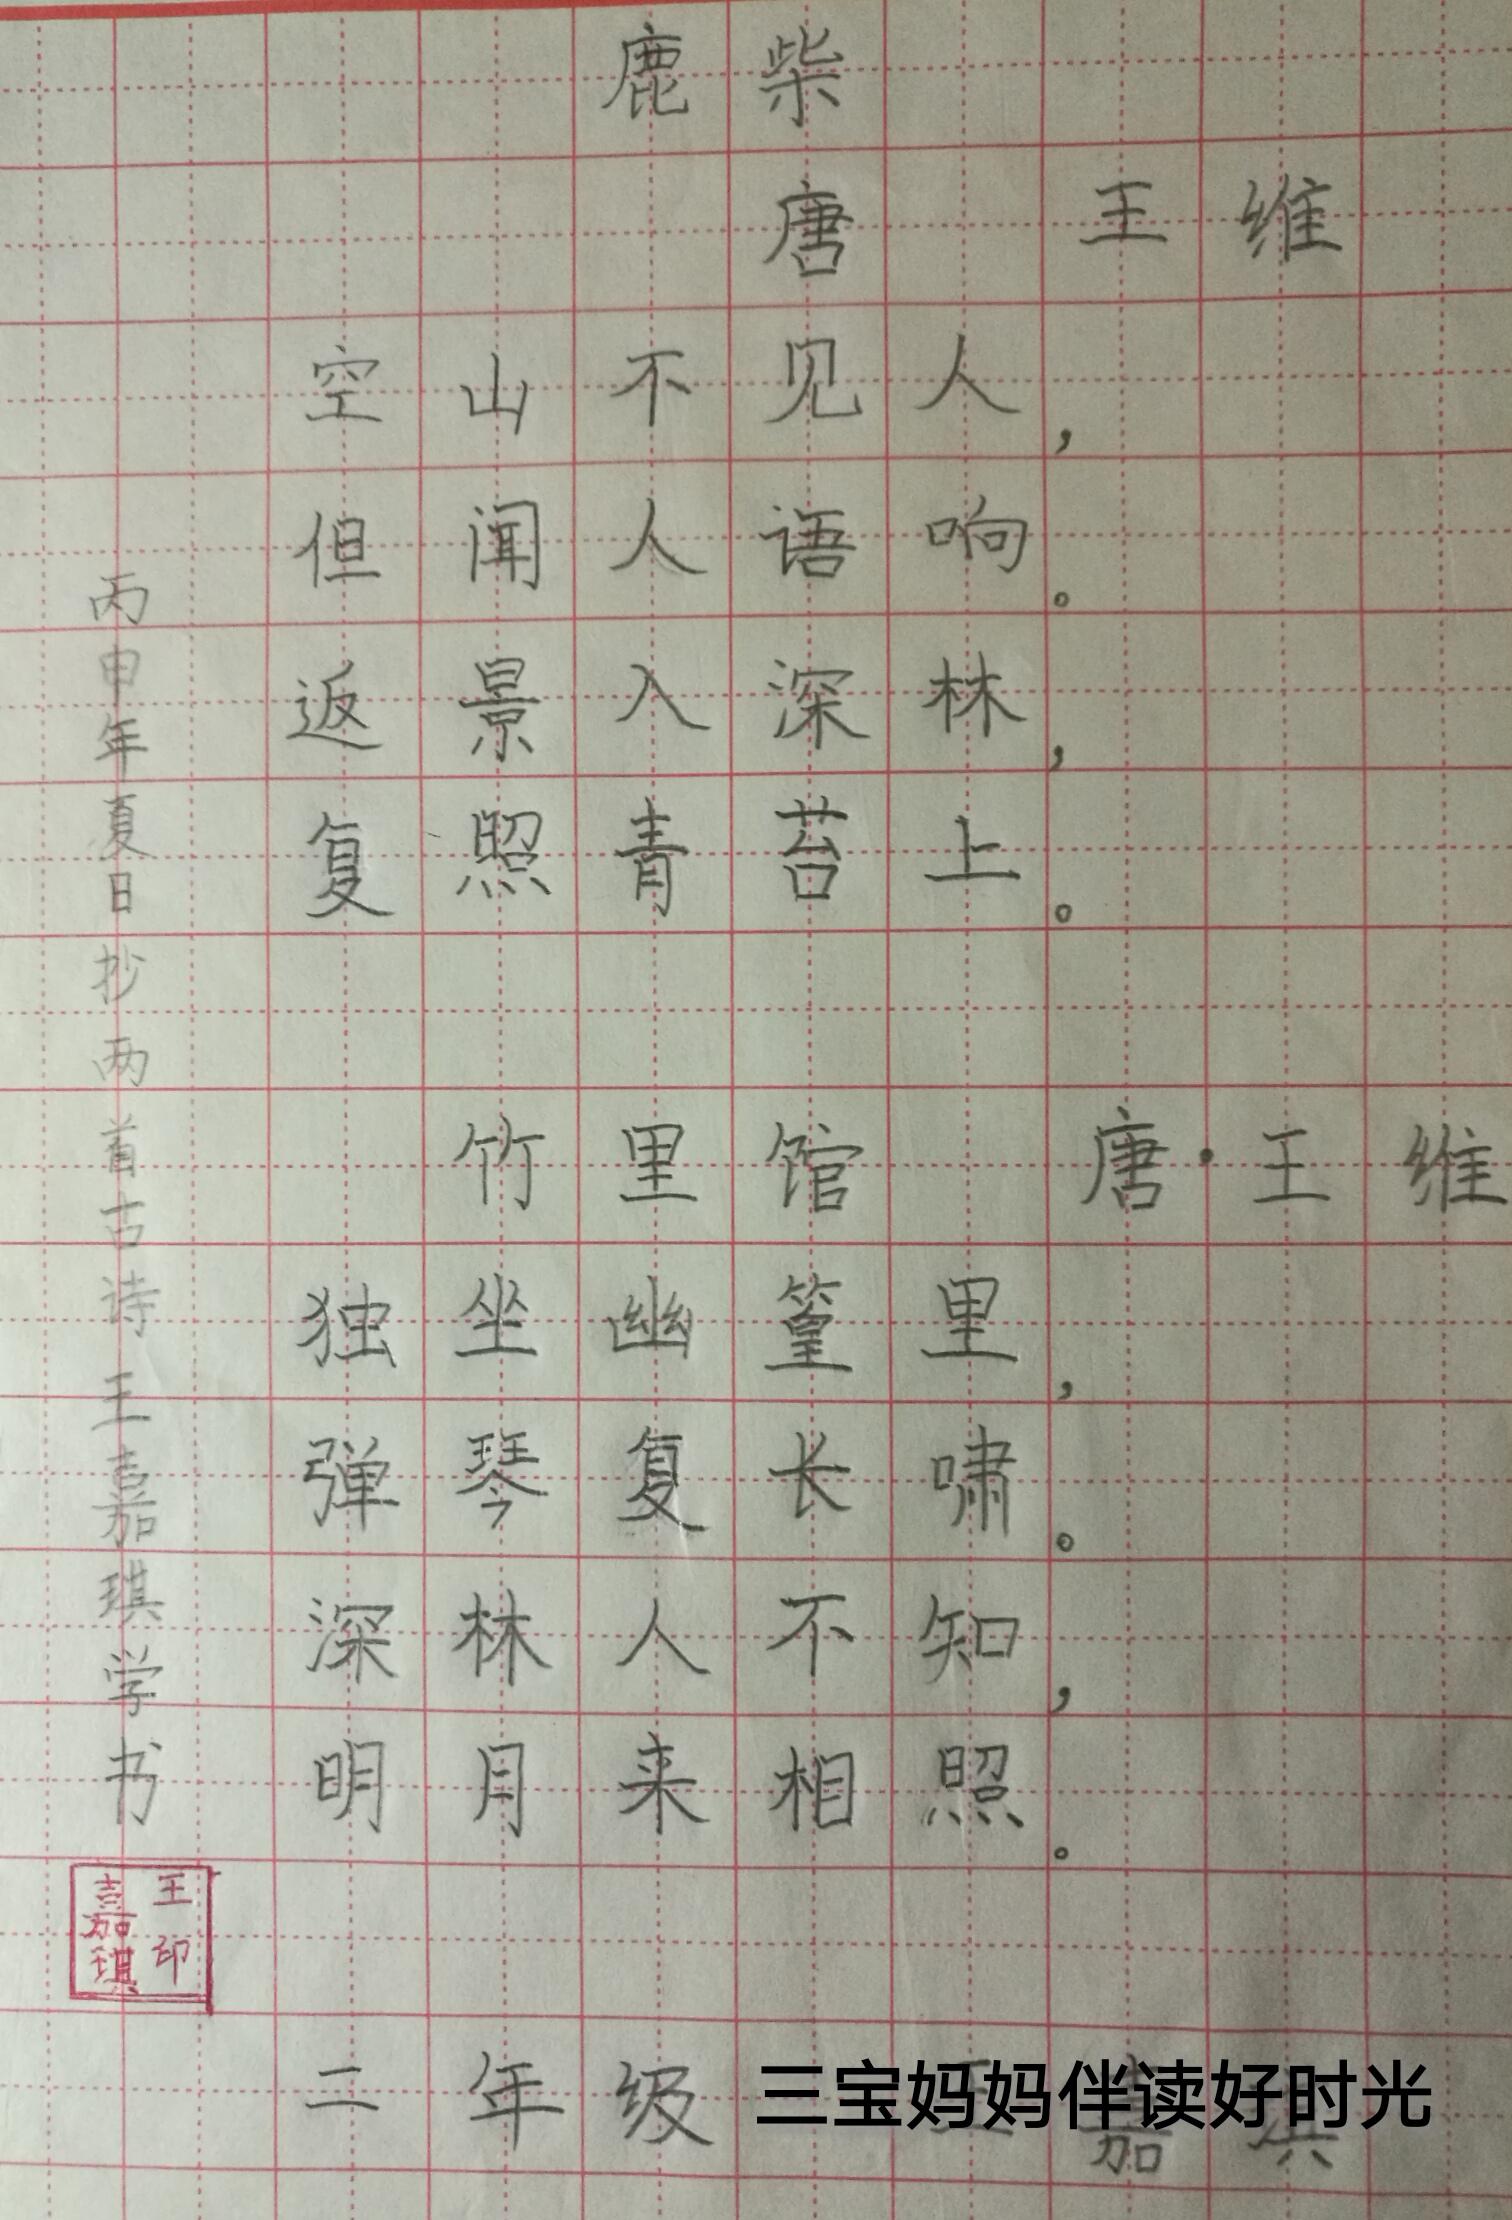 鹿柴
唐 王维
空山不见人，
但闻人语响。
返景入深林，
复照青苔上。
竹里馆 唐·王维
独坐幽篁里，
弹琴复长啸。
深林人不知，
明月来相照。
丙申年夏日抄两首古诗王嘉琪学书
王印
嘉琪
二年级 王嘉琪
三宝妈妈伴读好时光